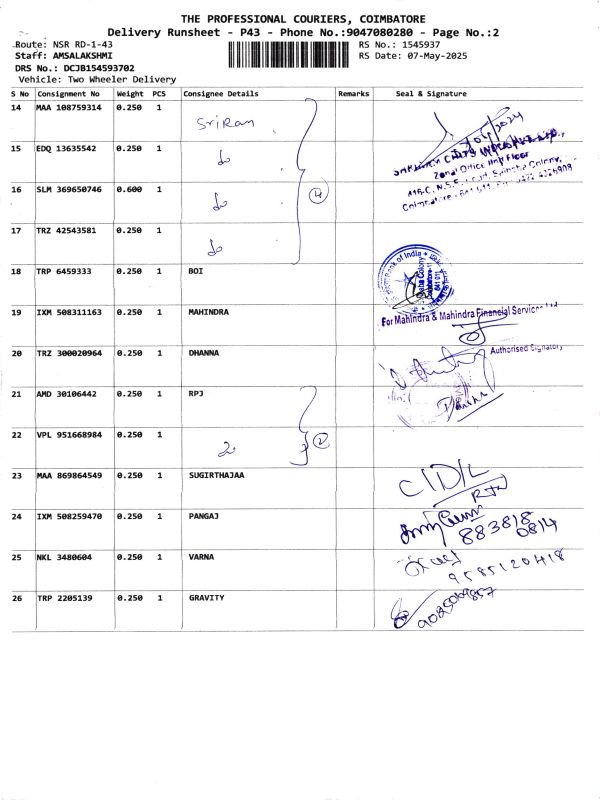 THE PROFESSIONAL COURIERS, COIMBATORE
Delivery Runsheet - P43 - Phone No.:9047080280 - Page No.:2
Route: NSR RD-1-43 RS No.: 1545937
Staff: AMSALAKSHMI RS Date: 07-May-2025
DRS No.: DCJB154593702
Vehicle: Two Wheeler Delivery
S No Consignment No Weight PCS Consignee Details Remarks Seal & Signature
14 MAA 108759314 0.250 1 SriRam
15 EDQ 13635542 0.250 1 do
Zonal Office IInd Floor
16 SLM 369650746 0.600 1 do 4
17 TRZ 42543581 0.250 1 do
18 TRP 6459333 0.250 1 BOI
Bank of India
19 IXM 508311163 0.250 1 MAHINDRA
For Mahindra & Mahindra Financial Services Ltd
20 TRZ 300020964 0.250 1 DHANNA
Authorised Signatory
21 AMD 30106442 0.250 1 RPJ
22 VPL 951668984 0.250 1 do 2
23 MAA 869864549 0.250 1 SUGIRTHAJAA
24 IXM 508259470 0.250 1 PANGAJ
883818
0814
25 NKL 3480604 0.250 1 VARNA
9585120418
26 TRP 2205139 0.250 1 GRAVITY